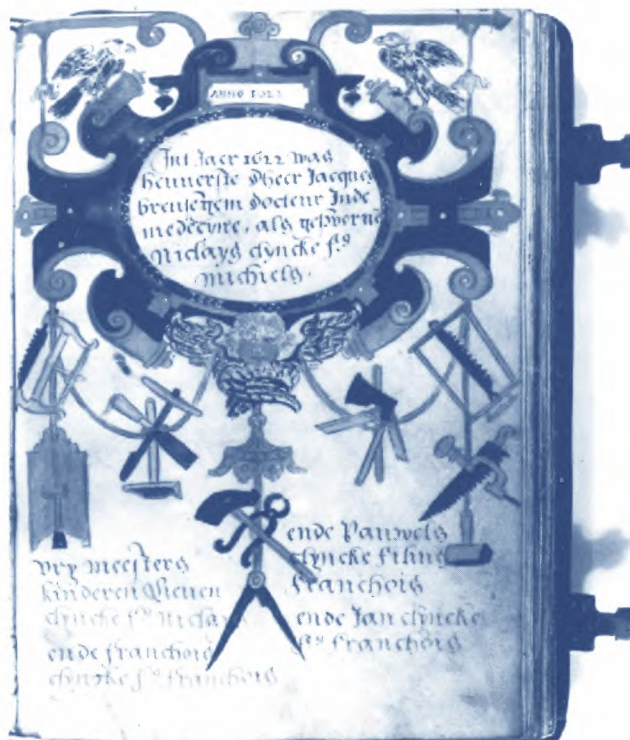 ANNO 1622
Int Jaer 1622 was
heuverste Dheer Jacques
breusegem Docteur Inde
medecyne, als gehvorne
Niclays clyncke fs
Michiels.
vry meesters
kinderen Vieuen
clyncke fs Niclays
ende franchois
clyncke fs franchois
ende Pauwels
clyncke filius
franchois
ende Jan clyncke
fs franchois